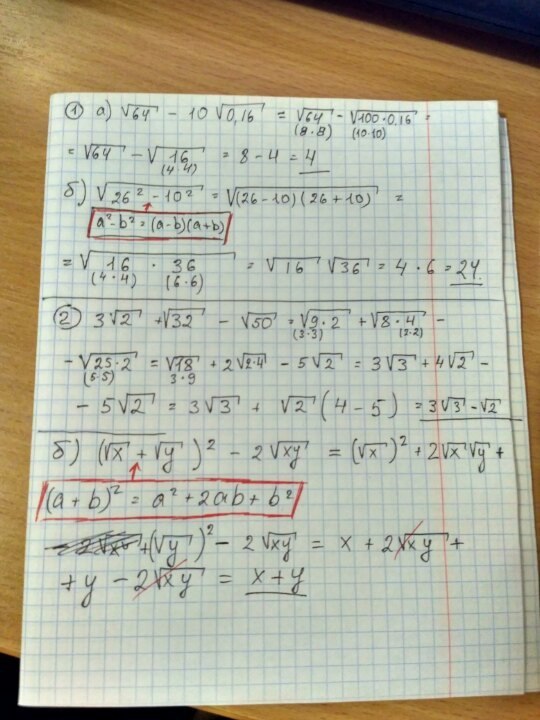 ① а) √64 - 10√0,16 = √64 - √100·0,16 =
(8·8) (10·10)
= √64 - √16 = 8 - 4 = 4
(4·4)
б) √26² - 10² = √(26-10)(26+10) =
a²-b² = (a-b)(a+b)
= √16 · 36 = √16 √36 = 4 · 6 = 24.
(4·4) (6·6)
② 3√2 + √32 - √50 = √9·2 + √8·4 -
(3·3) (2·2)
- √25·2 = √18 + 2√2·4 - 5√2 = 3√3 + 4√2 -
(5·5) 3·9
- 5√2 = 3√3 + √2 (4-5) = 3√3 - √2
б) (√x + √y)² - 2√xy = (√x)² + 2√x√y +
(a+b)² = a² + 2ab + b²
+ (√y)² - 2√xy = x + 2√xy +
+ y - 2√xy = x + y